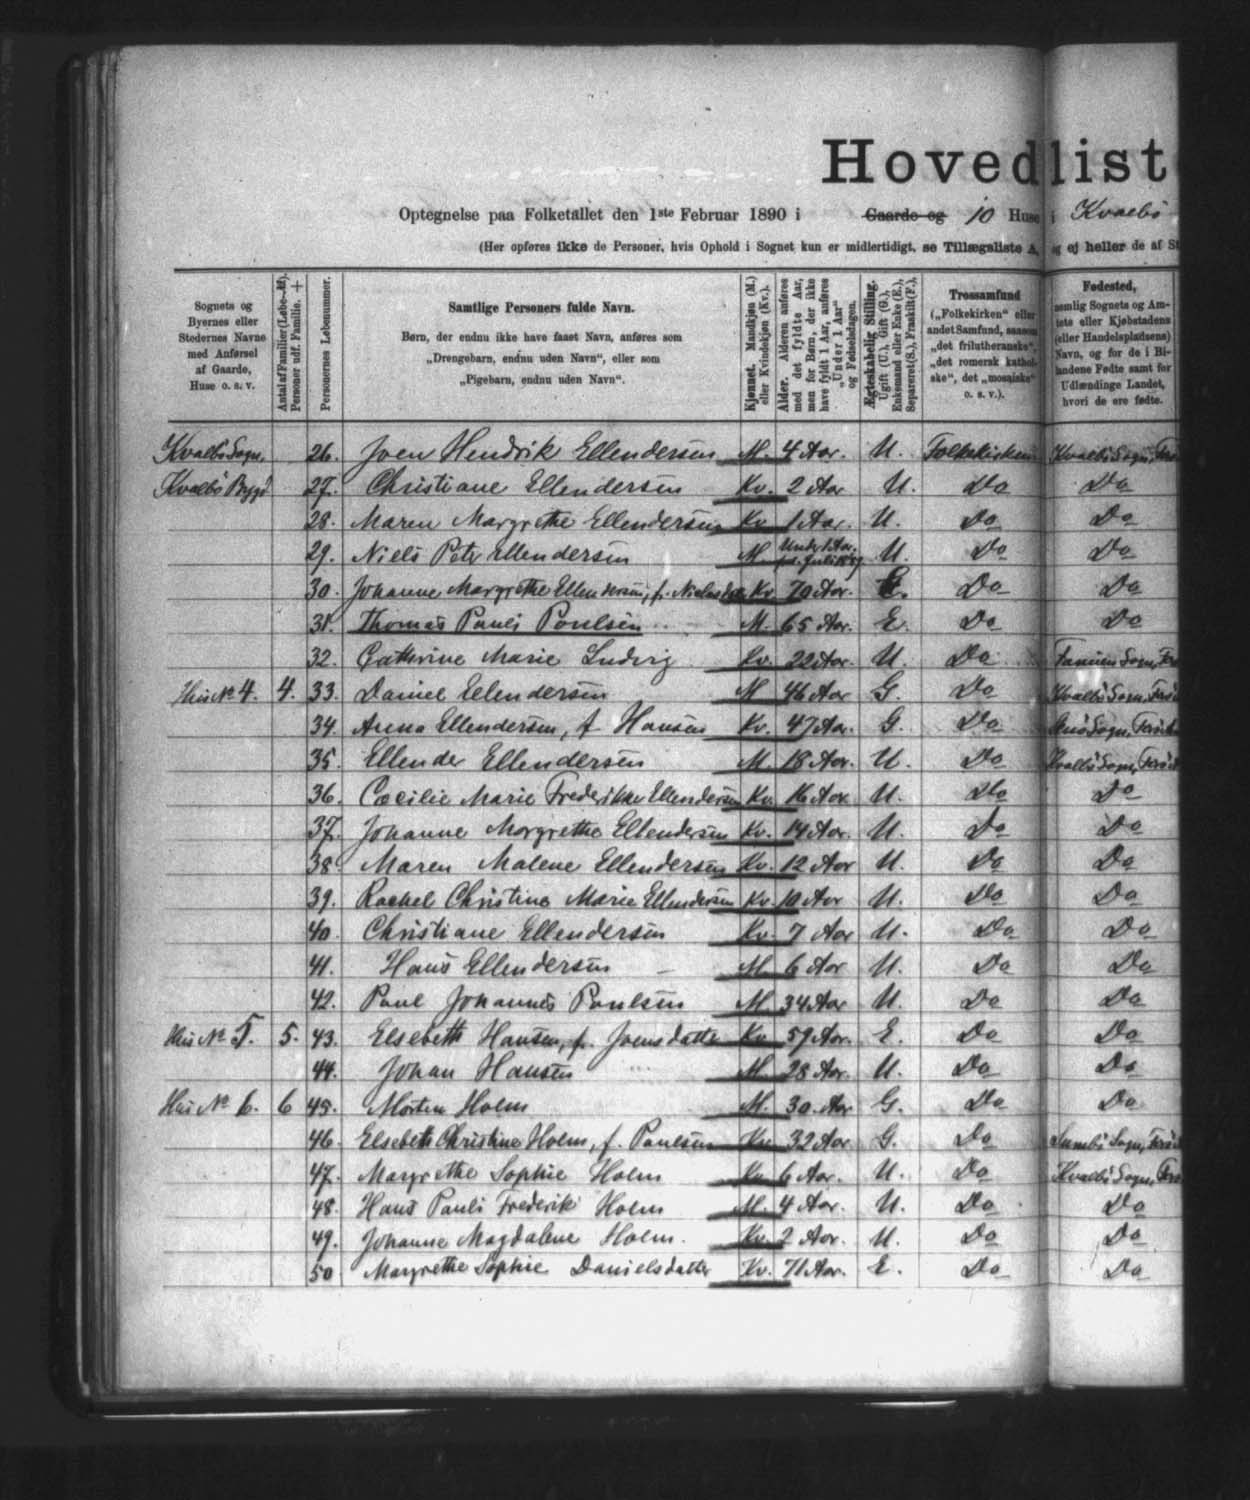 Hovedlist
Optegnelse paa Folketallet den 1ste Februar 1890 i Gaarde og 10 Huse i Kvalbø
(Her opføres ikke de Personer, hvis Ophold i Sognet kun er midlertidigt, se Tillægsliste A, og ej heller de af St
Sognets og Byernes eller Stedernes Navne med Anførsel af Gaarde, Huse o. s. v.
Antal af Familier (Løbe-№). Personer udf. Familie. +
Personernes Løbenummer.
Samtlige Personers fulde Navn.
Børn, der endnu ikke have faaet Navn, anføres som
„Drengebarn, endnu uden Navn“, eller som
„Pigebarn, endnu uden Navn“.
Kjønnet. Mandkjøn (M.) eller Kvindekjøn (Kv.).
Alder. Alderen anføres med det fyldte Aar, men for Børn, der ikke have fyldt 1 Aar, anføres „Under 1 Aar“ og Fødselsdagen.
Ægteskabelig Stilling. Ugift (U.), Gift (G.), Enkemand eller Enke (E.), Separeret (S.), Fraskilt (F.).
Trossamfund („Folkekirken“ eller andet Samfund, saasom „det frilutheranske“, „det romersk kathol- ske“, det „mosaiske“ o. s. v.).
Fødested, nemlig Sognets og Am- tets eller Kjøbstadens (eller Handelspladsens) Navn, og for de i Bi- landene Fødte samt for Udlændinge Landet, hvori de ere fødte.
Kvalbø Sogn, 26. Joen Hendrik Ellendersen M. 4 Aar. U. Folkekirken Kvalbø Sogn,
Kvalbø Bygd 27. Christiane Ellendersen Kv. 2 Aar U. Do Do
28. Maren Margrethe Ellendersen Kv. 1 Aar. U. Do Do
29. Niels Petr Ellendersen M. Under 1 Aar. U. Do Do
30. Johanne Margrethe Ellendersen, f. Kv 70 Aar. E. Do Do
31. Thomas Pauli Poulsen M. 65 Aar. E. Do Do
32. Cathrine Marie Ludvig Kv. 22 Aar. U. Do Famien Sogn,
Hus № 4. 4. 33. Daniel Ellendersen M 46 Aar G. Do Kvalbø Sogn,
34. Anna Ellendersen, f. Hansen Kv. 47 Aar. G. Do Sogn,
35. Ellender Ellendersen M. 18 Aar. U. Do Kvalbø Sogn,
36. Cæcilie Marie Frederikke Ellendersen Kv. 16 Aar U. Do Do
37. Johanne Margrethe Ellendersen Kv. 14 Aar. U. Do Do
38. Maren Malene Ellendersen Kv. 12 Aar U. Do Do
39. Rachel Christine Marie Ellendersen Kv. 10 Aar U. Do Do
40. Christiane Ellendersen Kv. 7 Aar U. Do Do
41. Hans Ellendersen M. 6 Aar U. Do Do
42. Poul Johannes Poulsen M. 34 Aar U. Do Do
Hus № 5. 5. 43. Elsebeth Hansen, f. Joensdatter Kv. 59 Aar. E. Do Do
44. Johan Hansen M. 28 Aar. U. Do Do
Hus № 6. 6 45. Morten Holm M. 30. Aar G. Do Do
46. Elsebeth Christine Holm, f. Poulsen Kv. 32 Aar G. Do Sumbø Sogn,
47. Margrethe Sophie Holm Kv. 6 Aar. U. Do Kvalbø Sogn,
48. Hans Pauli Frederik Holm M. 4 Aar. U. Do Do
49. Johanne Magdalene Holm. Kv. 2 Aar. U. Do Do
50 Margrethe Sophie Danielsdatter Kv. 71 Aar. E. Do Do